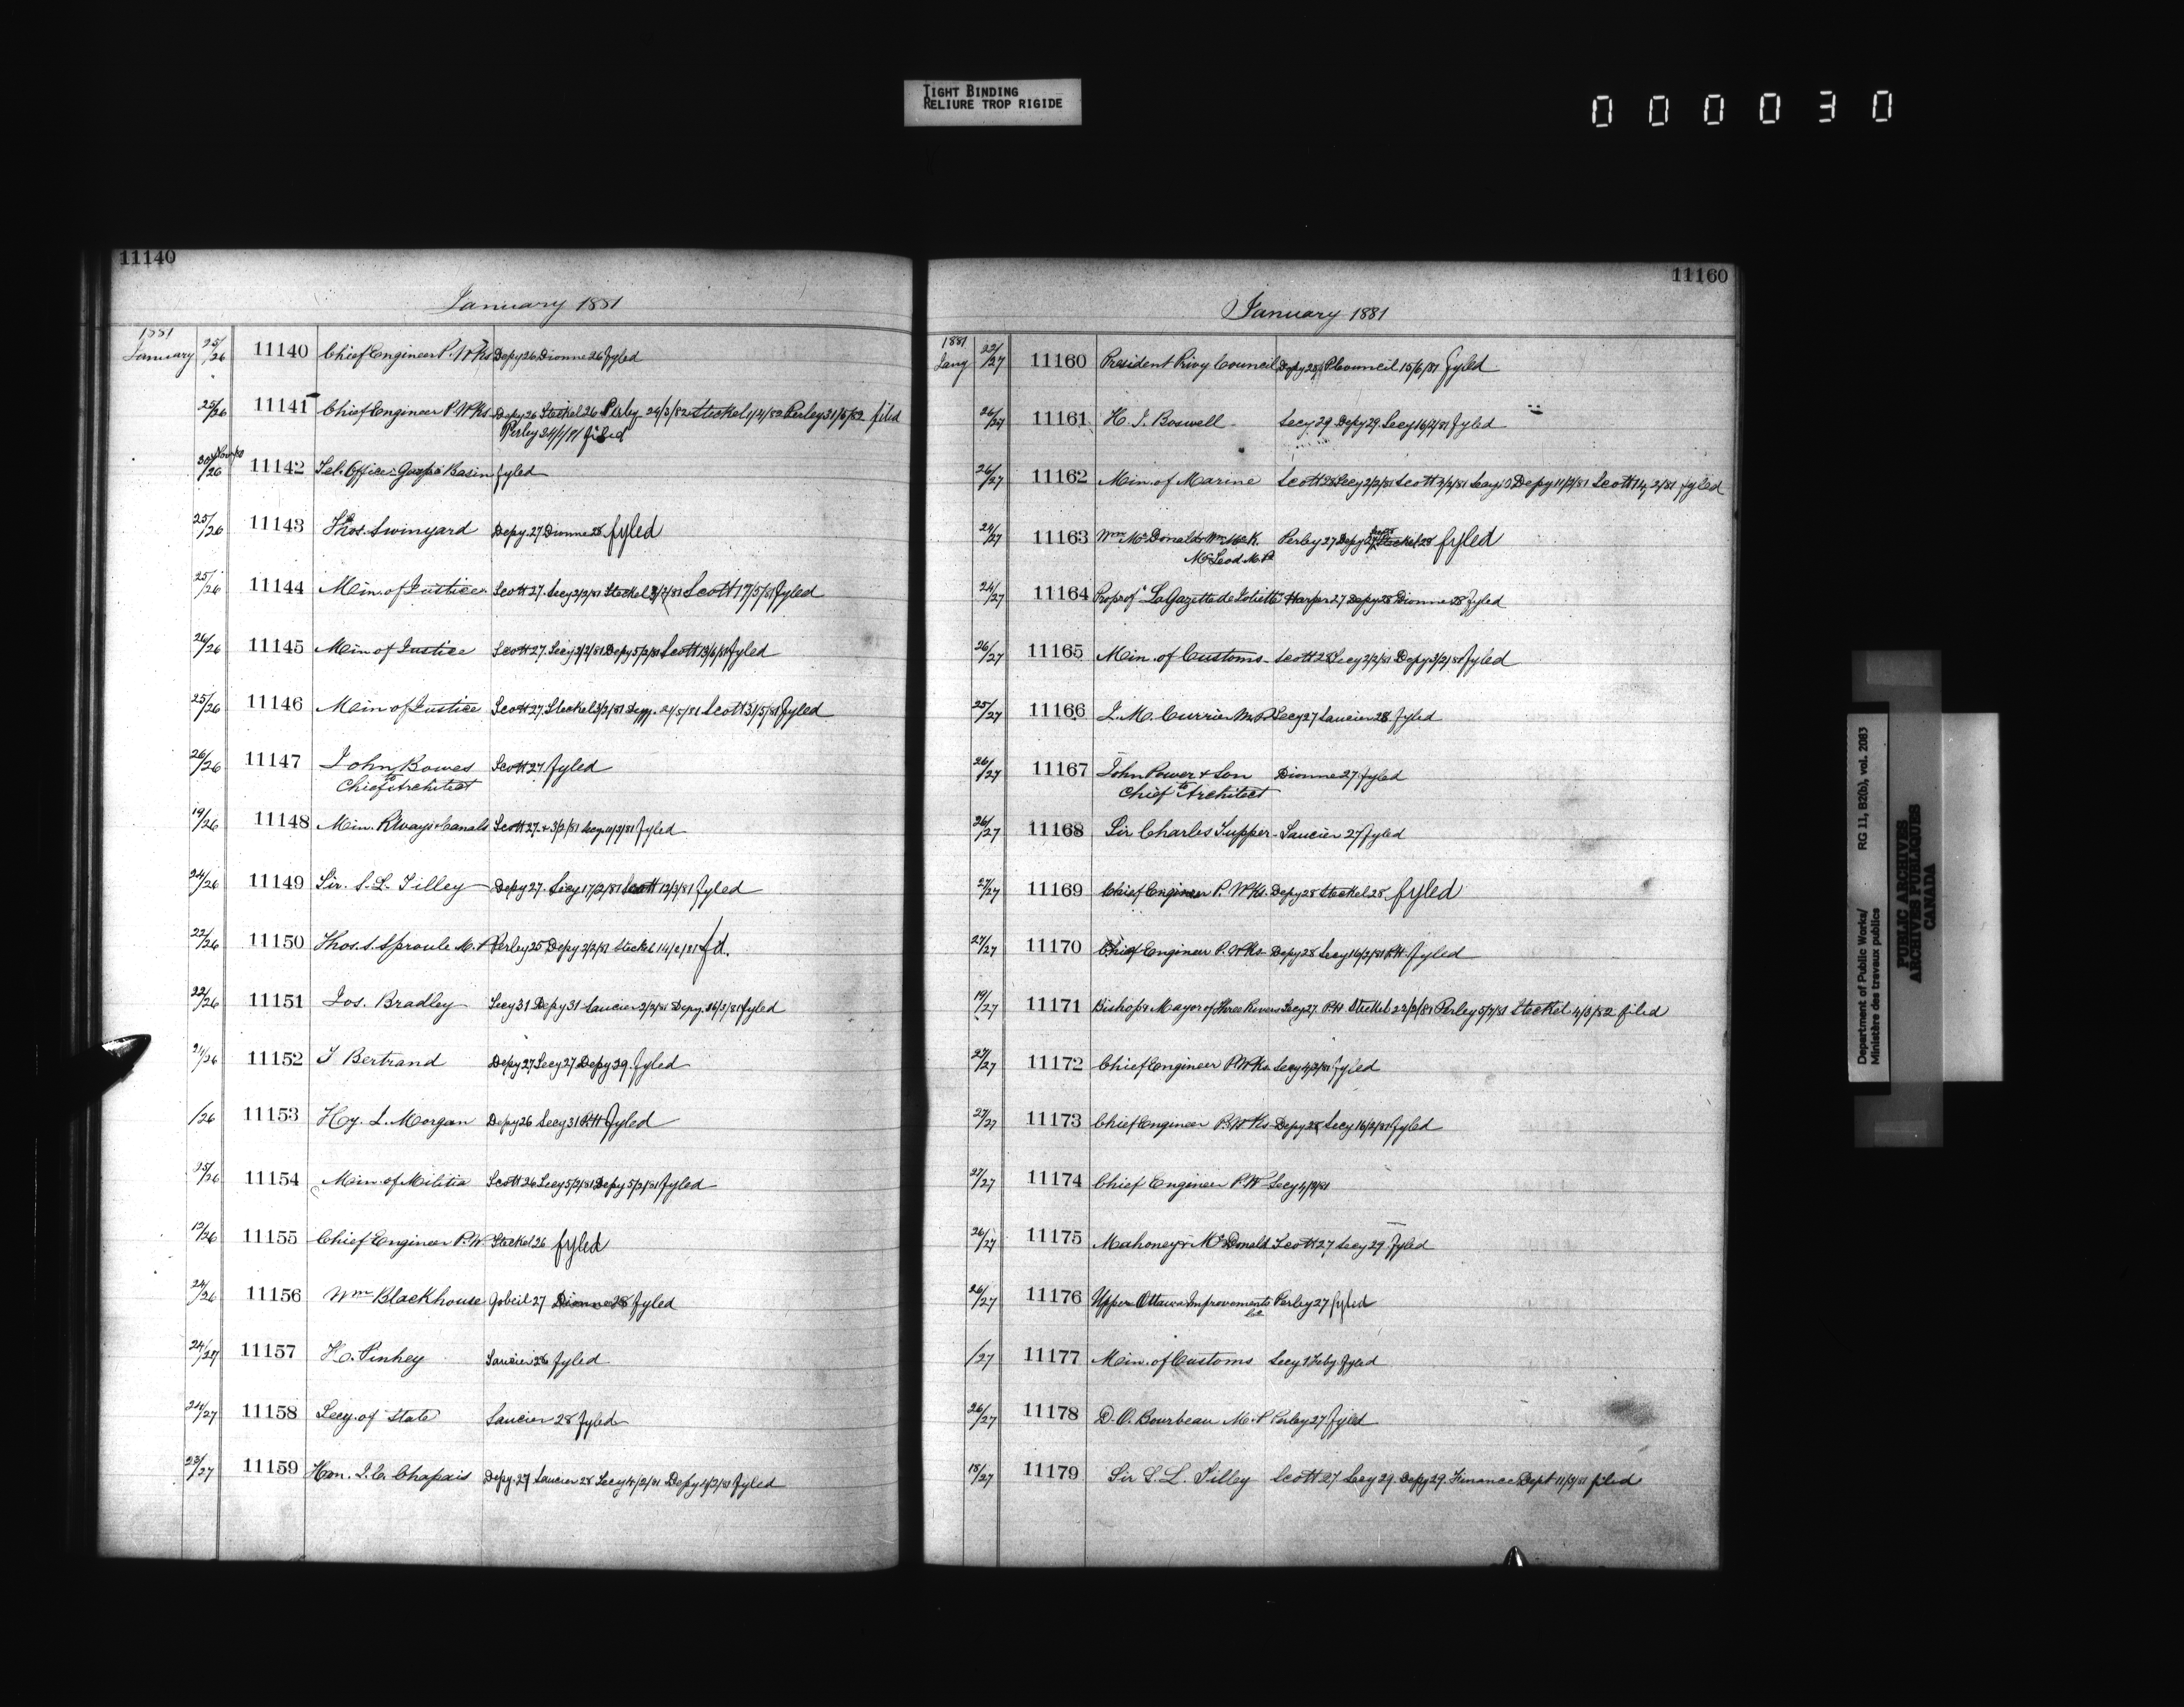 TIGHT BINDING
RELIURE TROP RIGIDE
000030
11140
January 1881
1881
January 25/26 11140 Chief Engineer P. Wks Depy 26 Dionne 26 fyled
25/26 11141 Chief Engineer P. Wks Depy 26 Steckel 26 Perley 24/3/82 Steckel 1/4/82 Perley 31/5/82 filed
Perley filed
30/26 11142 Tel. Office Gaspé Basin fyled
25/26 11143 Thos. Swinyard Depy. 27 Dionne 28 fyled
25/26 11144 Min. of Justice Scott 27. Secy 2/2/81 Steckel 3/2/81 Scott 17/5/81 fyled
26/26 11145 Min of Justice Scott 27. Secy 2/2/81 Depy 5/2/81 Scott 13/6/81 fyled
25/26 11146 Min of Justice Scott 27. Steckel 3/2/81 Scott 31/5/81 fyled
26/26 11147 John Bowes Scott 27 fyled
to Chief Architect
19/26 11148 Min. R'lways & Canals Scott 27. & 3/2/81 Secy fyled
24/26 11149 Sir. S. L. Tilley Depy 27. Secy 17/2/81 Scott 12/3/81 fyled
22/26 11150 Thos. S. Sproule M.P Perley 25 Depy 2/2/81 Steckel 14/2/81 fd.
22/26 11151 Jos. Bradley Secy 31 Depy 31 Saucier 2/2/81 Depy. 16/3/81 fyled
24/26 11152 J Bertrand Depy 27 Secy 27 Depy 29. fyled
/26 11153 Hy. J. Morgan Depy 26 Secy 31 P.H fyled
25/26 11154 Min. of Militia Scott 26 Secy 5/2/81 Depy 5/2/81 fyled
13/26 11155 Chief Engineer P. W. Steckel 26 fyled
24/26 11156 Wm Blackhouse Gobeil 27 Dionne 28 fyled
24/27 11157 H. Pinhey Saucier 28 fyled
24/27 11158 Secy. of State Saucier 28 fyled
23/27 11159 Hon. J. C. Chapais Depy. 27 Saucier 28 Secy 4/2/81 Depy 4/2/81 fyled
11160
January 1881
1881
Jany 22/27 11160 President Privy Council Depy 28 P Council 15/6/81 fyled
26/27 11161 H. J. Boswell Secy. 29 Depy 29. Secy 16/2/81 fyled
26/27 11162 Min. of Marine Scott 28 Secy 2/2/81 Scott 3/2/81 Secy 10 Depy 11/2/81 Scott 14/2/81 fyled
24/27 11163 Wm McDonald & Wm McK. Perley 27 Depy 27 Steckel 28 fyled
McLeod M.P
24/27 11164 Prop of "La Gazette de Joliette" Harper 27 Depy 28 Dionne 28 fyled
26/27 11165 Min. of Customs Scott 28 Secy 2/2/81 Depy 3/2/81 fyled
25/27 11166 J. M. Currier M.P Secy 27 Saucier 28 fyled
26/27 11167 John Power & Son Dionne 27. fyled
to Chief Architect
26/27 11168 Sir Charles Tupper Saucier 27 fyled
27/27 11169 Chief Engineer P. Wks. Depy 28 Steckel 28 fyled
27/27 11170 Chief Engineer P. Wks Depy 28 Secy 16/2/81 P.H. fyled
19/27 11171 Bishop & Mayor of Three Rivers Secy 27 P.H Steckel 22/2/81 Perley 5/7/81 Steckel 4/3/82 filed
27/27 11172 Chief Engineer P. Wks Secy 4/2/81 fyled
27/27 11173 Chief Engineer P. Wks Depy 28 Secy 16/2/81 fyled
27/27 11174 Chief Engineer P. W Secy 4/2/81
26/27 11175 Mahoney & McDonald Scott 27 Secy 29. fyled
26/27 11176 Upper Ottawa Improvements Perley 27 fyled
Co.
/27 11177 Min. of Customs Secy 1 Feby. fyled
26/27 11178 D. O. Bourbeau M.P Perley 27 fyled
18/27 11179 Sir S. L. Tilley Scott 27 Secy 29. Depy 29. Finance Dept 11/3/81 filed
Department of Public Works/ RG 11, B2(b), vol. 2083
Ministère des travaux publics
PUBLIC ARCHIVES
ARCHIVES PUBLIQUES
CANADA